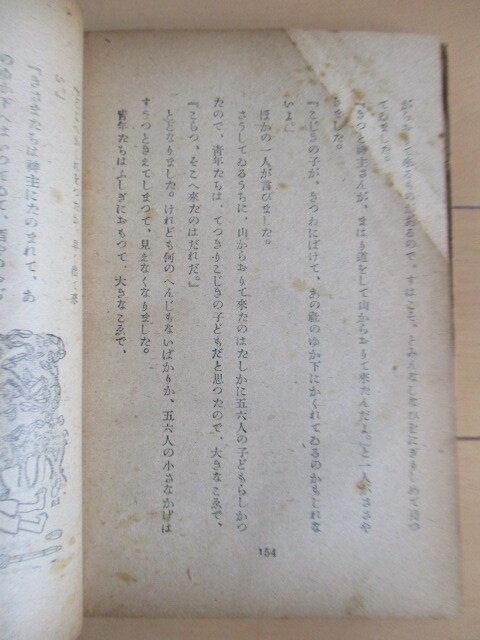 おりて來るものがあるので、すはこそ、とみんなしなひをにぎりしめて待つ
てゐました。
『きつと神主さんが、まはり道をして山からおりて來たんだよ。』と一人がささや
きました。
『こじきの子が、きつねにばけて、あの社のゆか下にかくれてゐるのかもしれな
いよ』
ほかの一人が言ひました。
さうしてゐるうちに、山からおりて來たのはたしかに五六人の子どもらしかつ
たので、靑年たちは、てつきりこじきの子どもだと思つたので、大きなこゑで、
『こらつ、そこへ來たのはだれだ。』
とどなりました。けれども何のへんじもないばかりか、五六人の小さなかげは
すうつときえてしまつて、見えなくなりました。
靑年たちはふしぎにおもつて、大きなこゑで、
184
『きさまたちは神主にたのまれて、あ